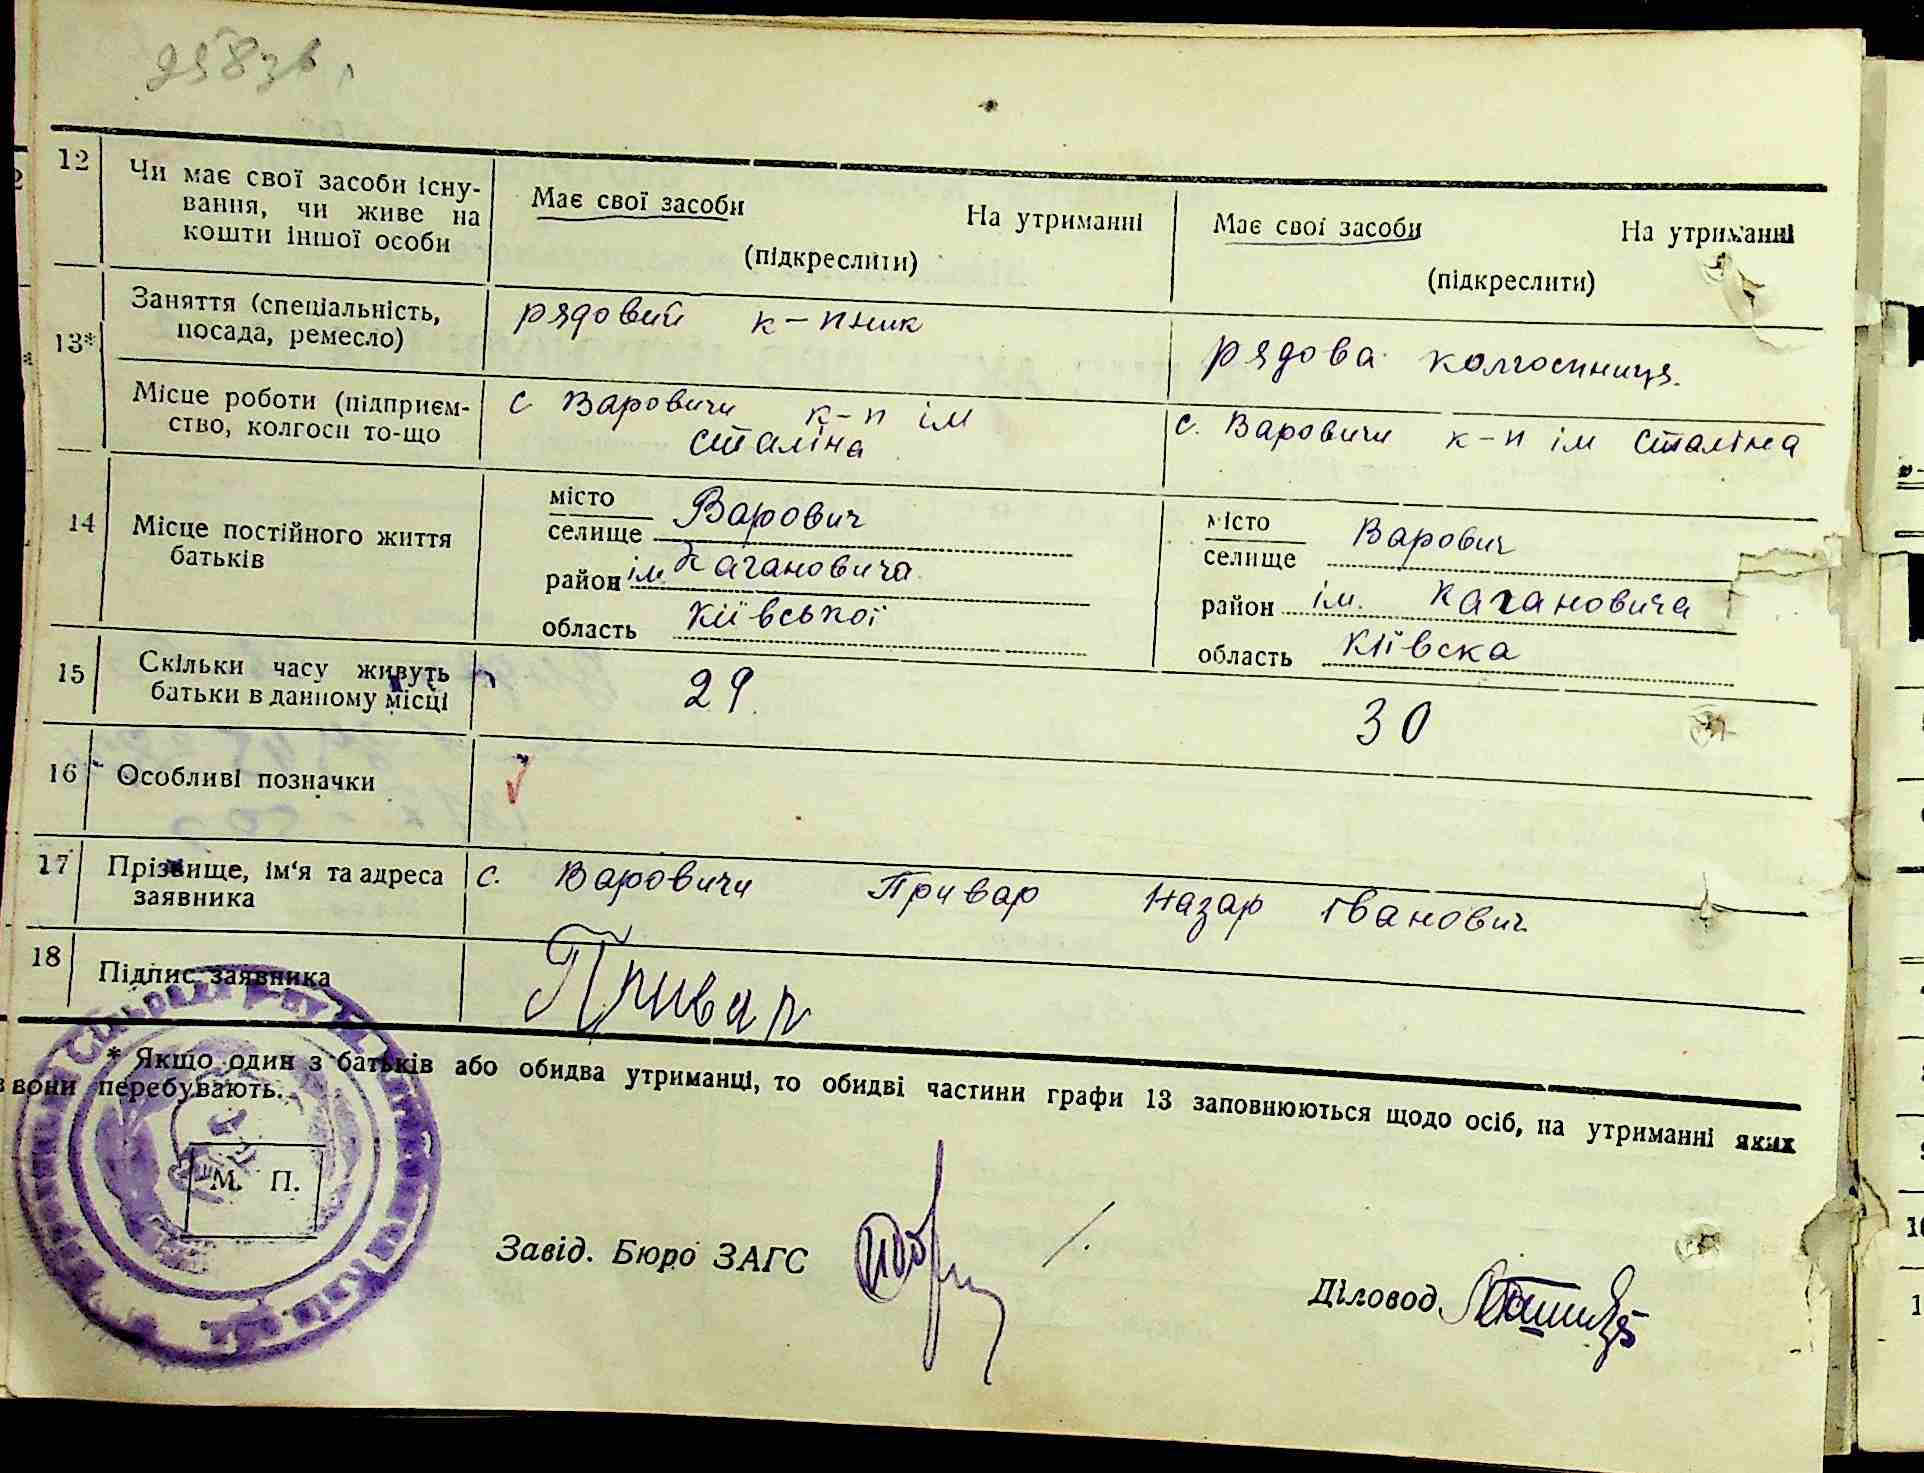 12
Чи має свої засоби існу-
вання, чи живе на
кошти іншої особи
Має свої засоби На утриманні
(підкреслити)
Має свої засоби На утриманні
(підкреслити)
13*
Заняття (спеціальність,
посада, ремесло)
рядовий к-пник
рядова колгоспниця.
Місце роботи (підприєм-
ство, колгосп то-що
с Варовичи к-п ім
сталіна
с. Варовичи к-п ім сталіна
14
Місце постійного життя
батьків
місто
селище Варович
район ім Кагановича
область Київської
місто
селище Варович
район ім. Кагановича
область Київска
15
Скільки часу живуть
батьки в данному місці
29
30
16
Особливі позначки
17
Прізвище, ім'я та адреса
заявника
с. Варовичи Привар Назар іванович
18
Підпис заявника
Привар
* Якщо один з батьків або обидва утриманці, то обидві частини графи 13 заповнюються щодо осіб, на утриманні яких
вони перебувають.
М. П.
Завід. Бюро ЗАГС
Діловод